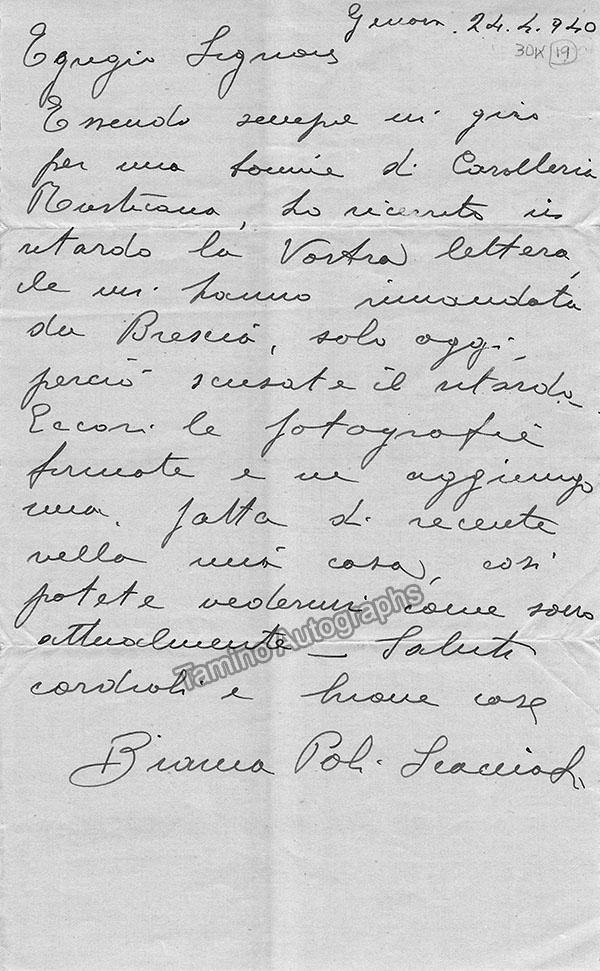 Genova. 24.4.940
30K 19
Egregio Signore
Essendo sempre in giro
per una tournie di Cavalleria
Rusticana, ho ricevuto in
ritardo la Vostra lettera,
che mi hanno rimandata
da Brescia, solo oggi,
perciò scusate il ritardo.
Eccovi le fotografie
firmate e ne aggiungo
una fatta di recente
nella mia casa, così
potete vedermi come sono
attualmente — Saluti
cordiali e buone cose
Bianca
Tamino Autographs